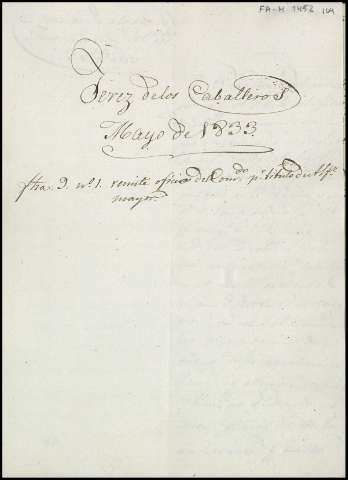 FA-M 1453
Xerez de los Caballeros
Mayo de 1833
fha. 9. nº 1. remite oficio del Comdo. pª. titulo de Alfz.
mayor.